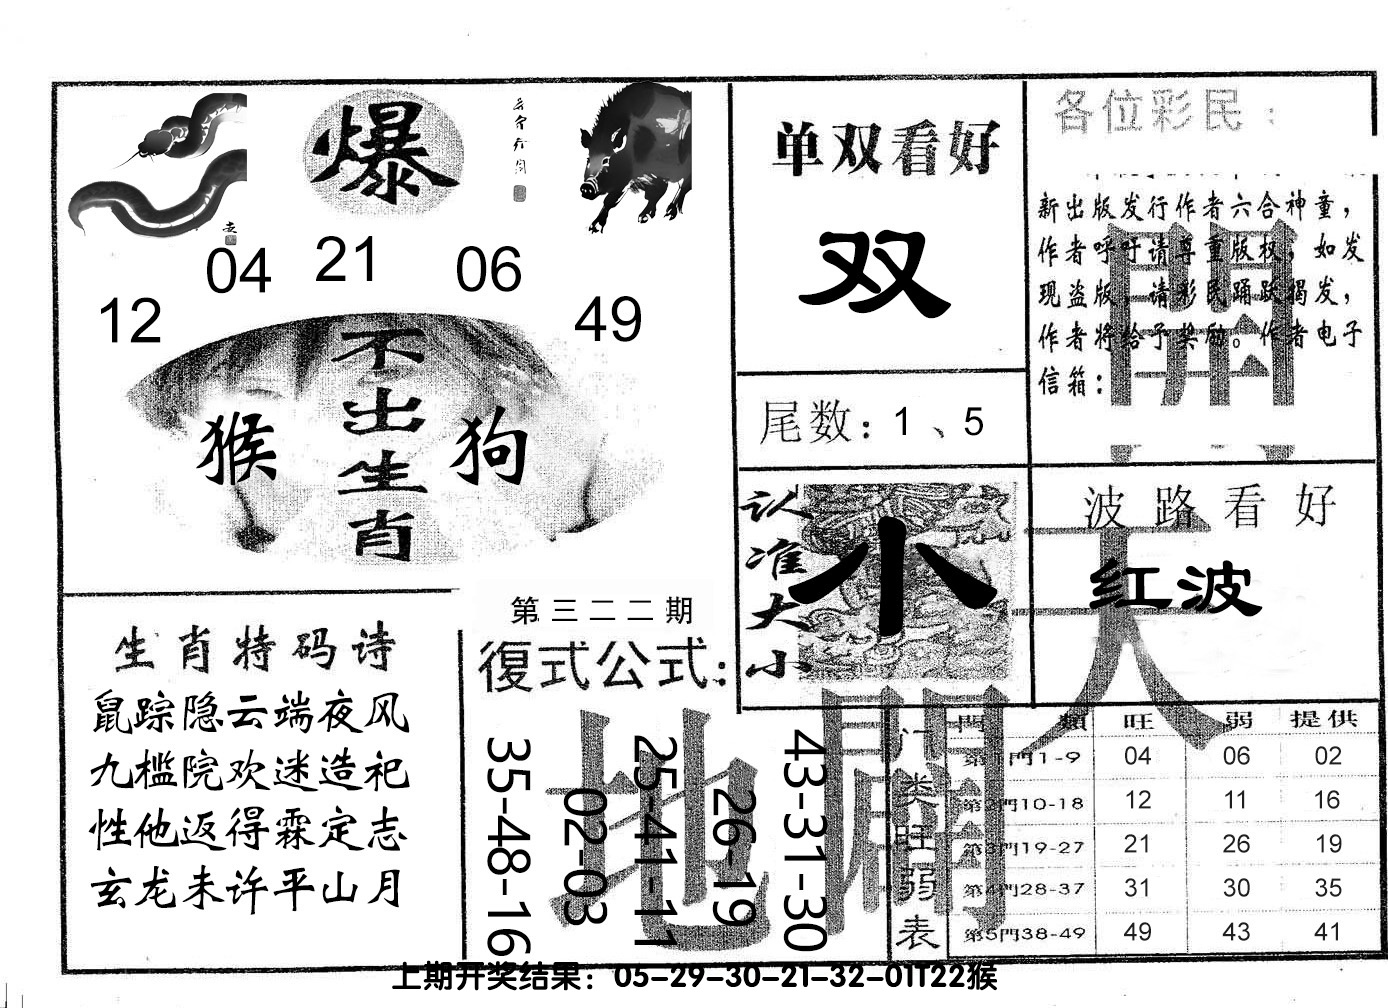 爆
04 21 06
12 49
不出生肖
猴 狗
单双看好
双
尾数：1、5
各位彩民：
新出版发行作者六合神童，
作者呼吁请尊重版权，如发
现盗版，请彩民踊跃揭发，
作者将给予奖励。作者电子
信箱：
開
认准大小
小
波路看好
红波
天
生肖特码诗
鼠踪隐云端夜风
九槛院欢迷造祀
性他返得霖定志
玄龙未许平山月
第三二二期
復式公式：
35-48-16
02-03
25-41-11
26-19
43-31-30
地
開
门类旺弱表
門類 旺 弱 提供
第1門1-9 04 06 02
第2門10-18 12 11 16
第3門19-27 21 26 19
第4門28-37 31 30 35
第5門38-49 49 43 41
上期开奖结果：05-29-30-21-32-01T22猴